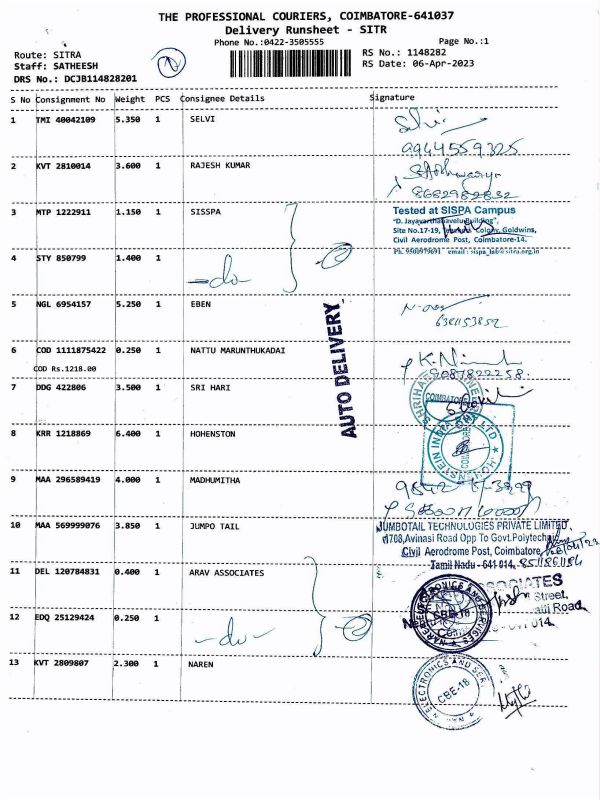 THE PROFESSIONAL COURIERS, COIMBATORE-641037
Delivery Runsheet - SITR
Phone No.:0422-3505555 Page No.:1
Route: SITRA RS No.: 1148282
Staff: SATHEESH RS Date: 06-Apr-2023
DRS No.: DCJB114828201
S No Consignment No Weight PCS Consignee Details Signature
1 TMI 40042109 5.350 1 SELVI Selvi
9944559325
2 KVT 2810014 3.600 1 RAJESH KUMAR
8682982832
3 MTP 1222911 1.150 1 SISSPA Tested at SISPA Campus
"D. Jayavarthanavelu Building",
Site No.17-19, Colony, Goldwins,
Civil Aerodrome Post, Coimbatore-14.
Ph. 9500979691 email : sispa_lab@sitra.org.in
4 STY 850799 1.400 1 -do-
5 NGL 6954157 5.250 1 EBEN
6381153852
6 COD 1111875422 0.250 1 NATTU MARUNTHUKADAI
COD Rs.1218.00
9087822258
7 DDG 422806 3.500 1 SRI HARI
COIMBATORE
AUTO DELIVERY
8 KRR 1218869 6.400 1 HOHENSTON
HOHENSTEIN INDIA PVT LTD
COIMBATORE
9 MAA 296589419 4.000 1 MADHUMITHA
10 MAA 569999076 3.850 1 JUMPO TAIL JUMBOTAIL TECHNOLOGIES PRIVATE LIMITED,
#1708,Avinasi Road Opp To Govt.Polytechnic
Civil Aerodrome Post, Coimbatore,
Tamil Nadu - 641 014. 8511861184
11 DEL 120784831 0.400 1 ARAV ASSOCIATES
Street,
Road,
014.
12 EDQ 25129424 0.250 1 -do-
NAREN ELECTRONICS AND SERVICES
CBE-18
13 KVT 2809807 2.300 1 NAREN
ELECTRONICS AND SER
CBE-18